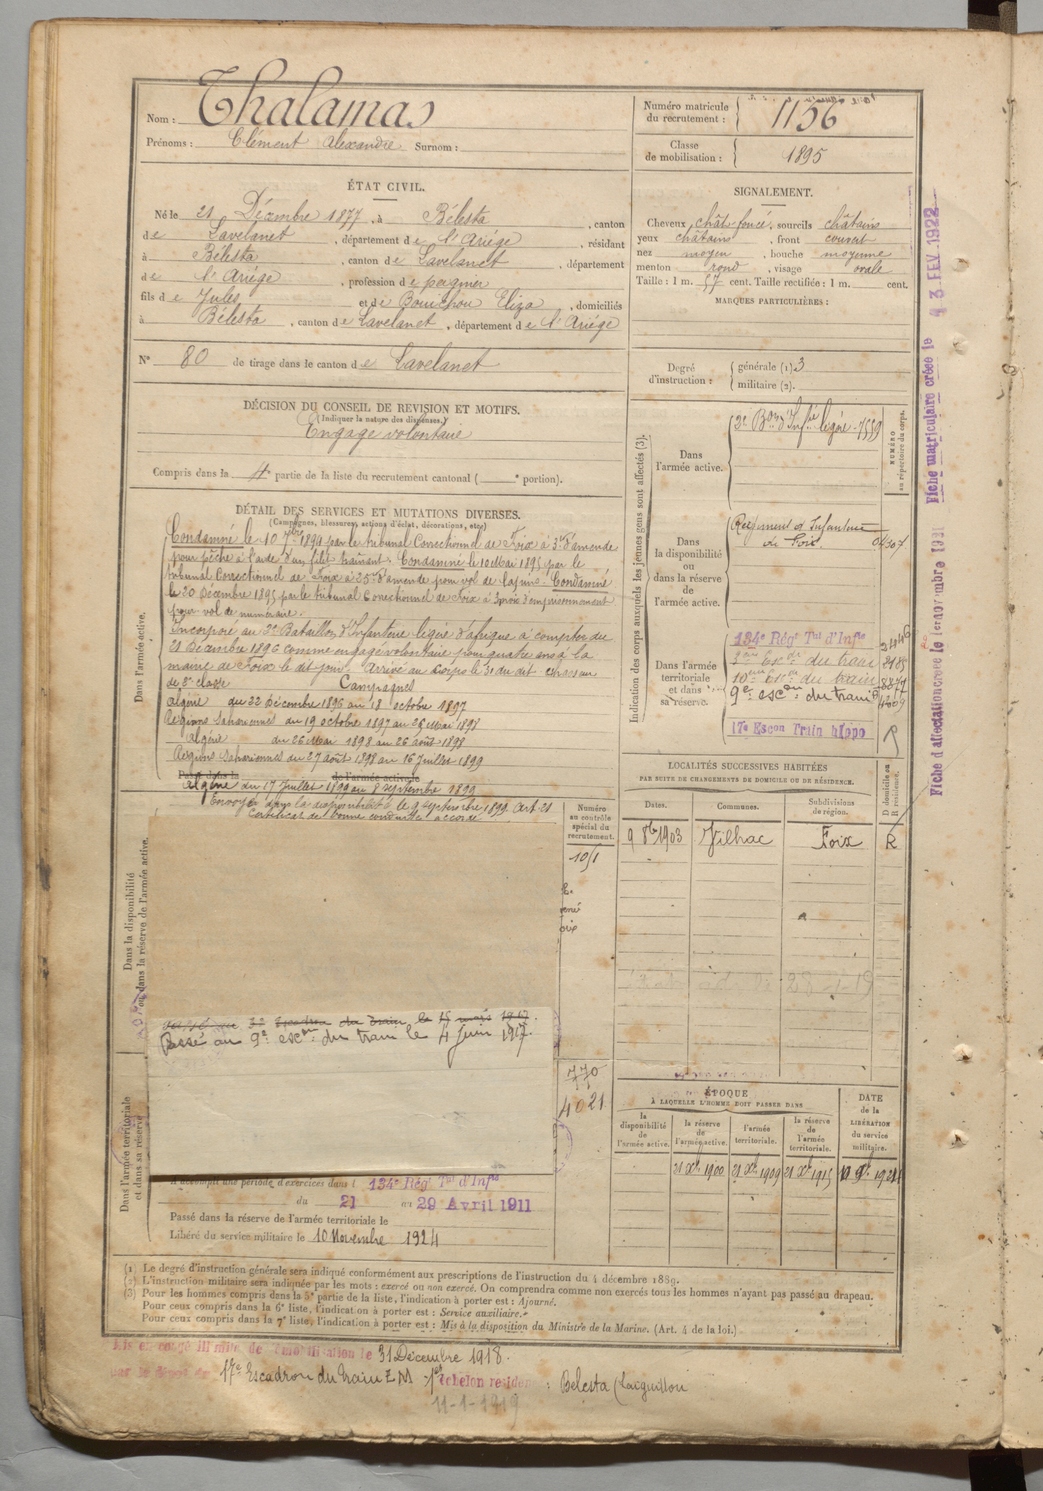 Nom : Thalamas
Prénoms : Clément Alexandre Surnom :
Numéro matricule du recrutement : 1156
Classe de mobilisation : 1895
ÉTAT CIVIL.
Né le 21 Décembre 1877, à Bélesta, canton
de Lavelanet, département de l'Ariége, résidant
à Bélesta, canton de Lavelanet, département
de l'Ariége, profession de peigneur
fils de Jules et de Bouichou Eliza, domiciliés
à Bélesta, canton de Lavelanet, département de l'Ariége
N° 80 de tirage dans le canton de Lavelanet
SIGNALEMENT.
Cheveux chât. foncé, sourcils châtains
yeux châtains, front couvert
nez moyen, bouche moyenne
menton rond, visage ovale
Taille : 1 m. 57 cent. Taille rectifiée : 1 m. cent.
MARQUES PARTICULIÈRES :
Degré d'instruction : générale (1) 3
militaire (2).
DÉCISION DU CONSEIL DE REVISION ET MOTIFS.
(Indiquer la nature des dispenses.)
Engagé volontaire
Compris dans la 4e partie de la liste du recrutement cantonal ( e portion).
DÉTAIL DES SERVICES ET MUTATIONS DIVERSES.
(Campagnes, blessures, actions d'éclat, décorations, etc.)
Dans l'armée active.
Condamné le 10 7bre 1894 par le tribunal Correctionnel de Foix à 3 f. d'amende
pour pêche à l'aide d'un filet trainant. Condamné le 10 Mai 1895 par le
tribunal Correctionnel de Foix à 25 f. d'amende pour vol de lapins. Condamné
le 20 Décembre 1895 par le tribunal Correctionnel de Foix à 3 mois d'emprisonnement
pour vol de numéraire.
Incorporé au 3e Bataillon d'Infanterie légère d'afrique à compter du
21 Décembre 1896 comme engagé volontaire pour quatre ans à la
mairie de Foix le dit jour. Arrivé au corps le 31 du dit chasseur
de 2e classe
Campagnes
Algérie du 22 Décembre 1896 au 18 octobre 1897
Régions Sahariennes du 19 octobre 1897 au 25 Mai 1898
Algérie du 26 Mai 1898 au 26 août 1898
Régions Sahariennes du 27 août 1898 au 16 Juillet 1899
Passé dans la de l'armée active
Algérie du 17 Juillet 1899 au 8 septembre 1899
Envoyé dans la disponibilité le 9 septembre 1899. Art. 21
Certificat de bonne conduite accordé
Indication des corps auxquels les jeunes gens sont affectés (3).
NUMÉRO au répertoire du corps.
Dans l'armée active. 3e Bon d'Infie légère 7559
Dans la disponibilité ou dans la réserve de l'armée active. Régiment d'Infanterie de Foix
Dans l'armée territoriale et dans sa réserve.
134e Régt Tal d'Infie
10e Escon du train
9e escon du train
17e Escon Train hippo
LOCALITÉS SUCCESSIVES HABITÉES
PAR SUITE DE CHANGEMENTS DE DOMICILE OU DE RÉSIDENCE.
Dates. Communes. Subdivisions de région. D domicile ou R résidence.
9 8bre 1903 Vilhac Foix R
Dans la disponibilité ou dans la réserve de l'armée active.
Numéro au contrôle spécial du recrutement.
10/1
Passé au 2e Escadron du train le 15 mars 1917.
Passé au 9e escon du train le 4 Juin 1917.
770
4021
Dans l'armée territoriale et dans sa réserve.
A accompli une période d'exercices dans l 134e Régt Tal d'Infie
du 21 au 29 Avril 1911
Passé dans la réserve de l'armée territoriale le
Libéré du service militaire le 10 Novembre 1924
ÉPOQUE
À LAQUELLE L'HOMME DOIT PASSER DANS
la disponibilité de l'armée active. la réserve de l'armée active. l'armée territoriale. la réserve de l'armée territoriale.
DATE de la LIBÉRATION du service militaire.
21 Xbre 1900 21 Xbre 1909 21 Xbre 1915
(1) Le degré d'instruction générale sera indiqué conformément aux prescriptions de l'instruction du 4 décembre 1889.
(2) L'instruction militaire sera indiquée par les mots : exercé ou non exercé. On comprendra comme non exercés tous les hommes n'ayant pas passé au drapeau.
(3) Pour les hommes compris dans la 5e partie de la liste, l'indication à porter est : Ajourné.
Pour ceux compris dans la 6e liste, l'indication à porter est : Service auxiliaire.
Pour ceux compris dans la 7e liste, l'indication à porter est : Mis à la disposition du Ministre de la Marine. (Art. 4 de la loi.)
Mis en congé illimité de démobilisation le 31 Décembre 1918.
par le dépôt du 17e Escadron du train Z M 1er échelon résidence : Belesta (Laiguillou
11-1-1919
Fiche matriculaire créée le 3 FEV 1922
Fiche d'affectation créée le